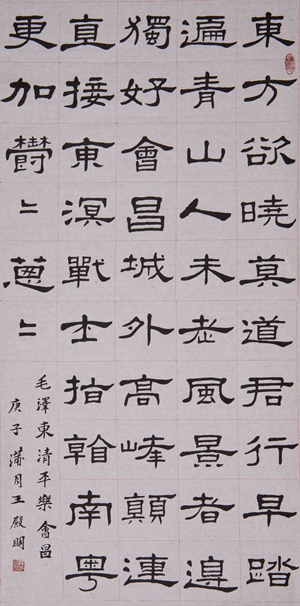 東方欲曉莫道君行早踏
遍青山人未老風景者邊
獨好會昌城外高峰顛連
直接東溟戰士指看南粵
更加鬱〻蔥〻
毛澤東清平樂會昌
庚子蒲月王殿明